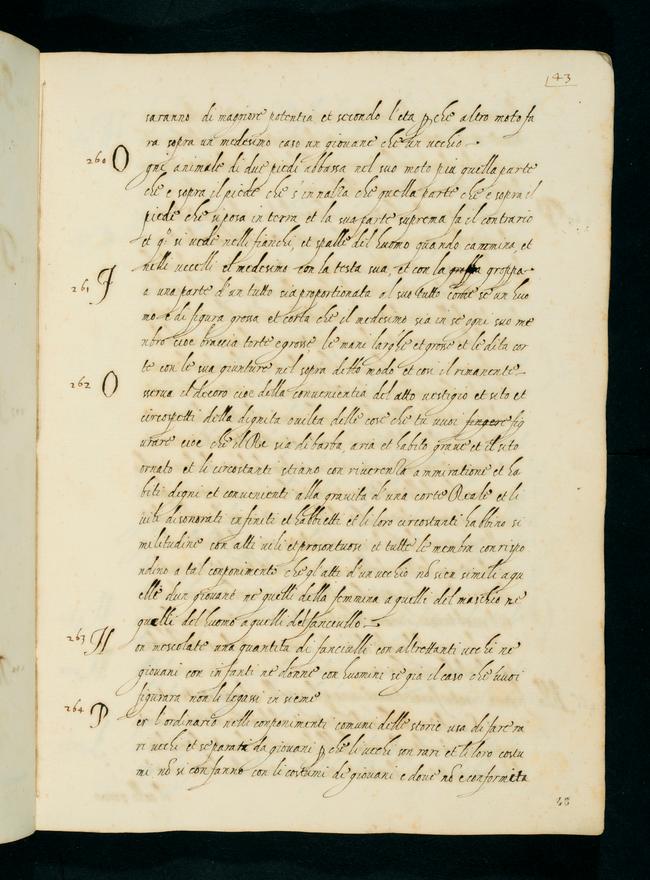 43
saranno di maggiore potentia et secondo l'eta p che altro moto fa
ra sopra un medesimo caso un giovane che un vecchio
260 O
gni animale di due piedi abbassa nel suo moto piu quella parte
che e sopra il piede che s'innalza che quella parte che e sopra il
piede che si posa in terra et la sua parte suprema fa il contrario
et q.o si vede nelli fianchi, et spalle del huomo quando cammina et
nelli uccelli et medesimo con la testa sua, et con la groppa
261
a una parte d'un tutto sia proportionata al suo tutto come se un huo
mo e di figura grossa et corta che il medesimo sia in se ogni suo me
nbro cioe braccia torte e grosse, le mani larghe et grosse et le dita cor
te con le sua giunture nel sopra detto modo et cosi il rimanente
262 O
sserva il decoro cioe della convenientia del atto vestigio et sito et
circospetti della dignita o vilta delle cose che tu vuoi fig
urare cioe che il Re sia di barba, aria et habito grave et il sito
ornato et li circostanti stiano con riverentia ammiratione et ha
biti degni et convenienti alla gravita d'una corte Reale et li
vili disonorati infiniti et habbietti et li loro circostanti habbino si
militudine con atti vili et prosontuosi et tutte le membra conrispo
ndino a tal conponimento che gl'atti d'un vecchio nõ sien simili a qu
elli dun giovane ne quelli della femmina a quelli del maschio ne
quelli del huomo a quelli del fanciullo
263 N
on mescolate una quantita di fanciulli con altrettanti vecchi ne
giovani con infanti ne donne con huomini se gia il caso che vuoi
figurara non li legassi insieme
264 P
er l'ordinario nelli conponimenti comuni delle storie usa di fare ra
ri vechi et separati da giovani p che li vecchi son rari et li loro costu
mi nõ si confanno con li costumi de giovani e dove nõ e conformita
48